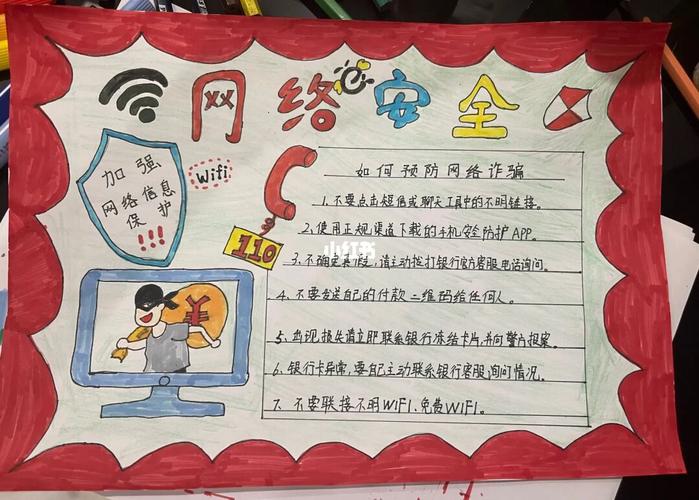 网络安全
加强
网络信息
保护
!!!
Wifi
110
小红书
¥
如何预防网络诈骗
1.不要点击短信或聊天工具中的不明链接。
2.使用正规渠道下载的手机安防护APP。
3.不确定真假,请主动拨打银行官方客服电话询问。
4.不要发送自己的付款二维码给任何人。
5.出现损失请立即联系银行冻结卡片并向警方报案。
6.银行卡异常,要自己主动联系银行客服询问情况。
7.不要联接不明WIFI、免费WIFI。